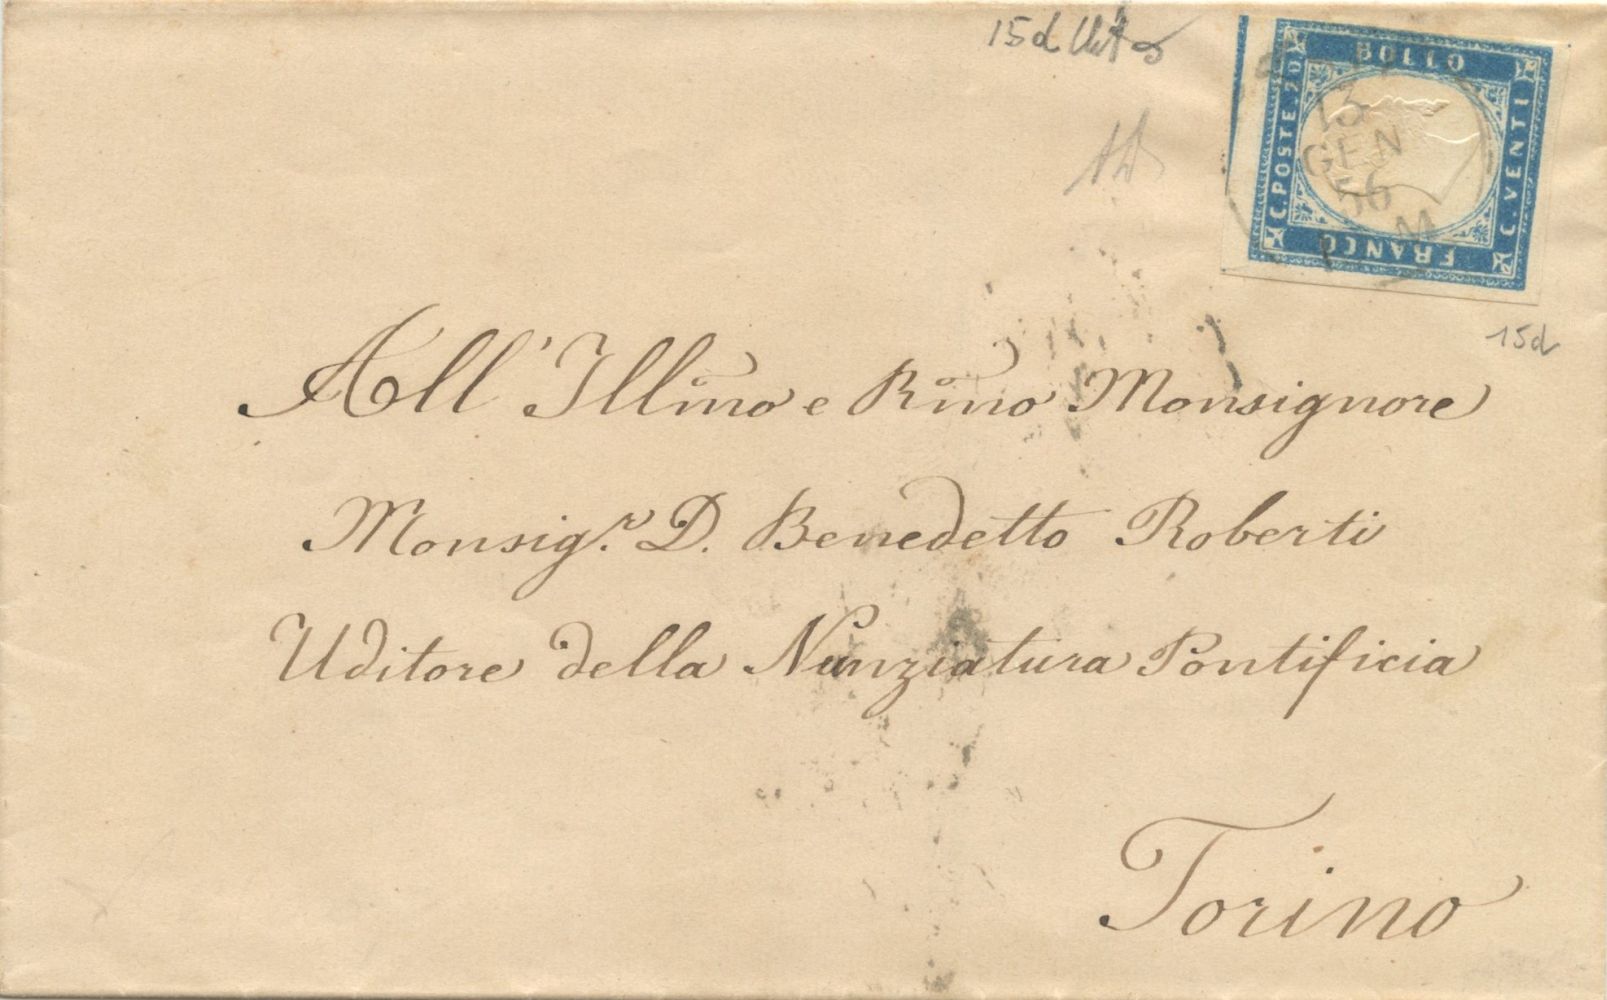 15d
C. POSTE. 20
BOLLO
C. VENTI
FRANCO
13
GEN
56
M
15d
All' Illmo e Rmo Monsignore
Monsig.r D. Benedetto Roberti
Uditore della Nunziatura Pontificia
Torino